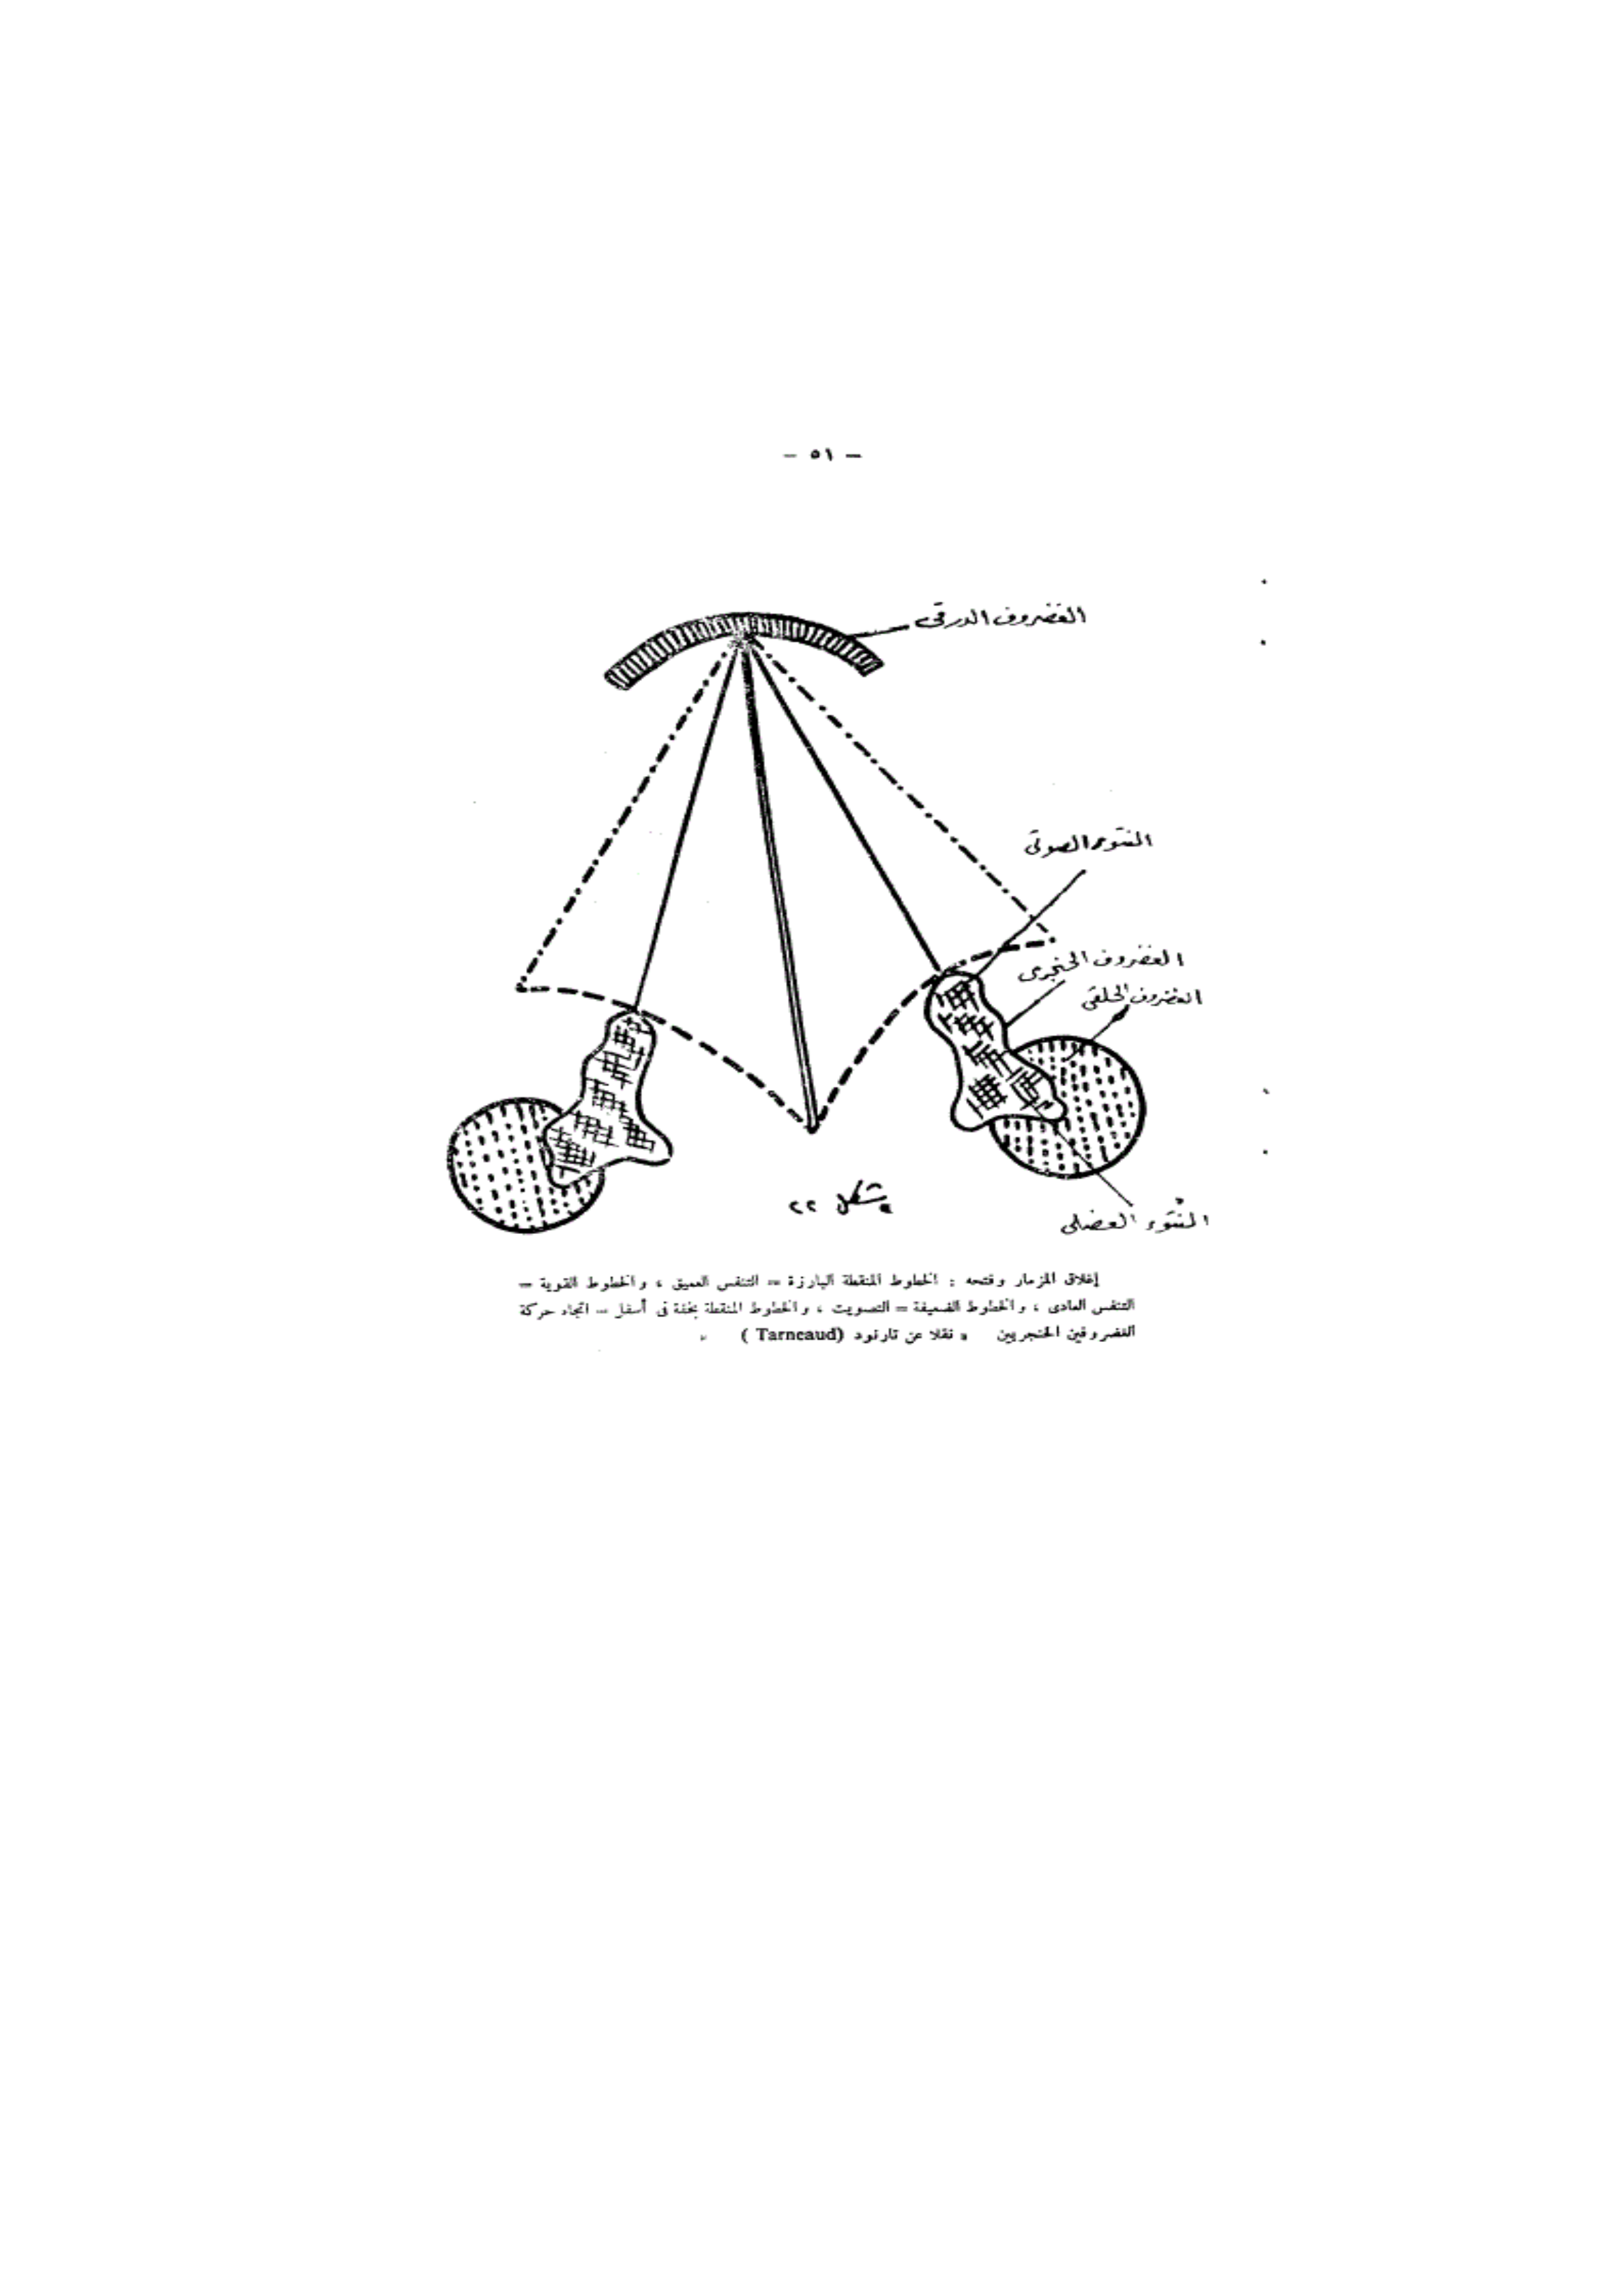 — ٥١ —
الغضروف الدرقى
النتوء الصوتى
الغضروف الحنجرى
الغضروف الحلقى
النتوء العضلى
شكل ٢٢
إغلاق المزمار وفتحه : الخطوط المنقطة البارزة = التنفس العميق ، والخطوط القوية =
التنفس العادى ، والخطوط الضعيفة = التصويت ، والخطوط المنقطة بخفة فى أسفل = اتجاه حركة
الغضروفين الحنجريين « نقلا عن تارنود (Tarneaud ) »